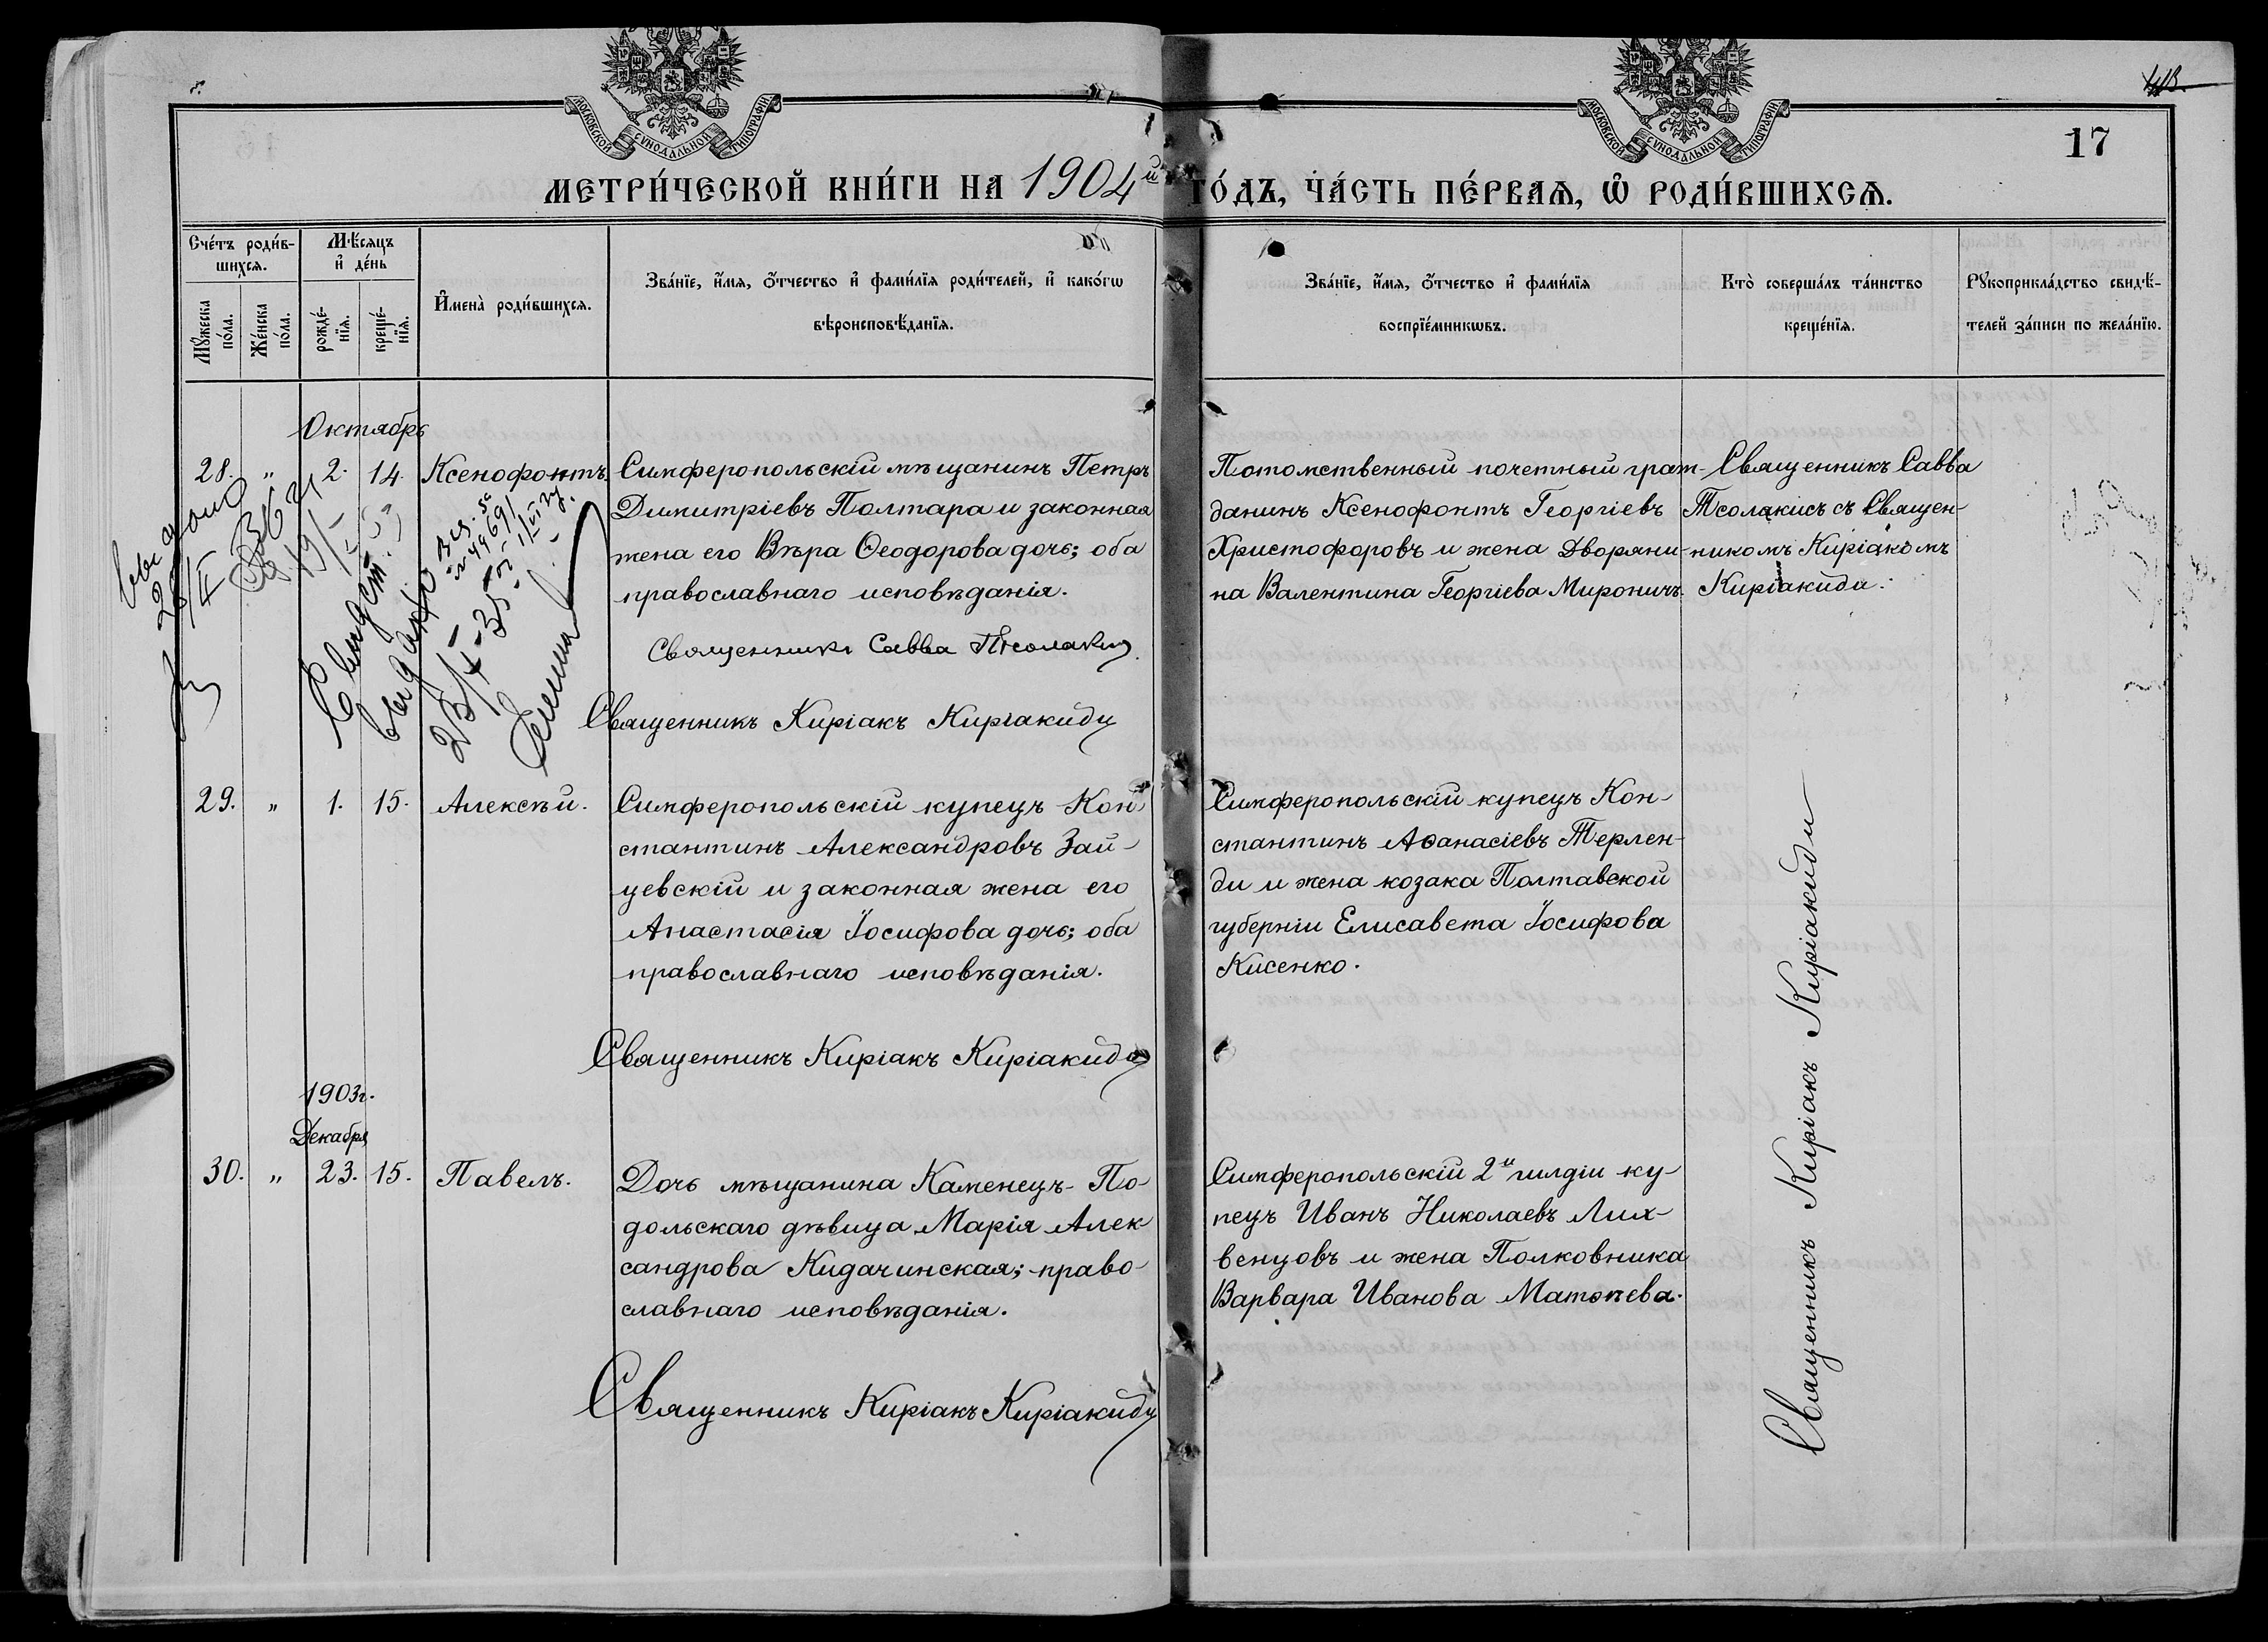 МОСКОВСКОЙ СѴНОДАЛЬНОЙ ТИПОГРАФІИ
МОСКОВСКОЙ СѴНОДАЛЬНОЙ ТИПОГРАФІИ
17
МЕТРИ́ЧЕСКОЙ КНИ́ГИ НА 1904й ГО́ДЪ, ЧА́СТЬ ПЕ́РВАѦ, Ѡ҆ РОДИ́ВШИХСѦ.
Сче́тъ роди́в-
шихсѧ.
Мꙋ́жеска по́ла.
Же́нска по́ла.
Мѣ́сѧцъ
и҆ де́нь
рожде́-
нїѧ.
креще́-
нїѧ.
И҆мена̀ роди́вшихсѧ.
Зва́нїе, и҆́мѧ, ѻ҆́тчество и҆ фами́лїѧ роди́телей, и҆ како́гѡ
вѣроисповѣ́данїѧ.
Зва́нїе, и҆́мѧ, ѻ҆́тчество и҆ фами́лїѧ
воспрїе́мникѡвъ.
Кто̀ соверша́лъ та́инство
креще́нїѧ.
Рꙋкоприкла́дство свидѣ́-
телей за́писи по жела́нїю.
Октябрь
28. " 2. 14. Ксенофонтъ.
Симферопольскій мѣщанинъ Петръ
Димитріевъ Полтара и законная
жена его Вѣра Ѳеодорова дочь; оба
православнаго исповѣданія.
Священникъ Савва Тсолакис
Священникъ Киріакъ Киріакиди
Потомственный почетный граж-
данинъ Ксенофонтъ Георгіевъ
Христофоровъ и жена Дворяни-
на Валентина Георгіева Мироничъ.
Священникъ Савва
Тсолакисъ съ Священ-
никомъ Киріакомъ
Киріакиди.
29. " 1. 15. Алексѣй.
Симферопольскій купецъ Кон-
стантинъ Александровъ Зай-
цевскій и законная жена его
Анастасія Іосифова дочь; оба
православнаго исповѣданія.
Священникъ Киріакъ Киріакиди
Симферопольскій купецъ Кон-
стантинъ Аѳанасіевъ Терлен-
ди и жена козака Полтавской
губерніи Елисавета Іосифова
Кисенко.
1903г.
Декабря
30. " 23. 15. Павелъ.
Дочь мѣщанина Каменецъ-По-
дольскаго дѣвица Марія Алек
сандрова Кидачинская; право-
славнаго исповѣданія.
Священникъ Киріакъ Киріакиди
Симферопольскій 2й гилдіи ку-
пецъ Иванъ Николаевъ Лих-
венцовъ и жена Полковника
Варвара Иванова Матвѣева.
Священникъ Киріакъ Киріакиди